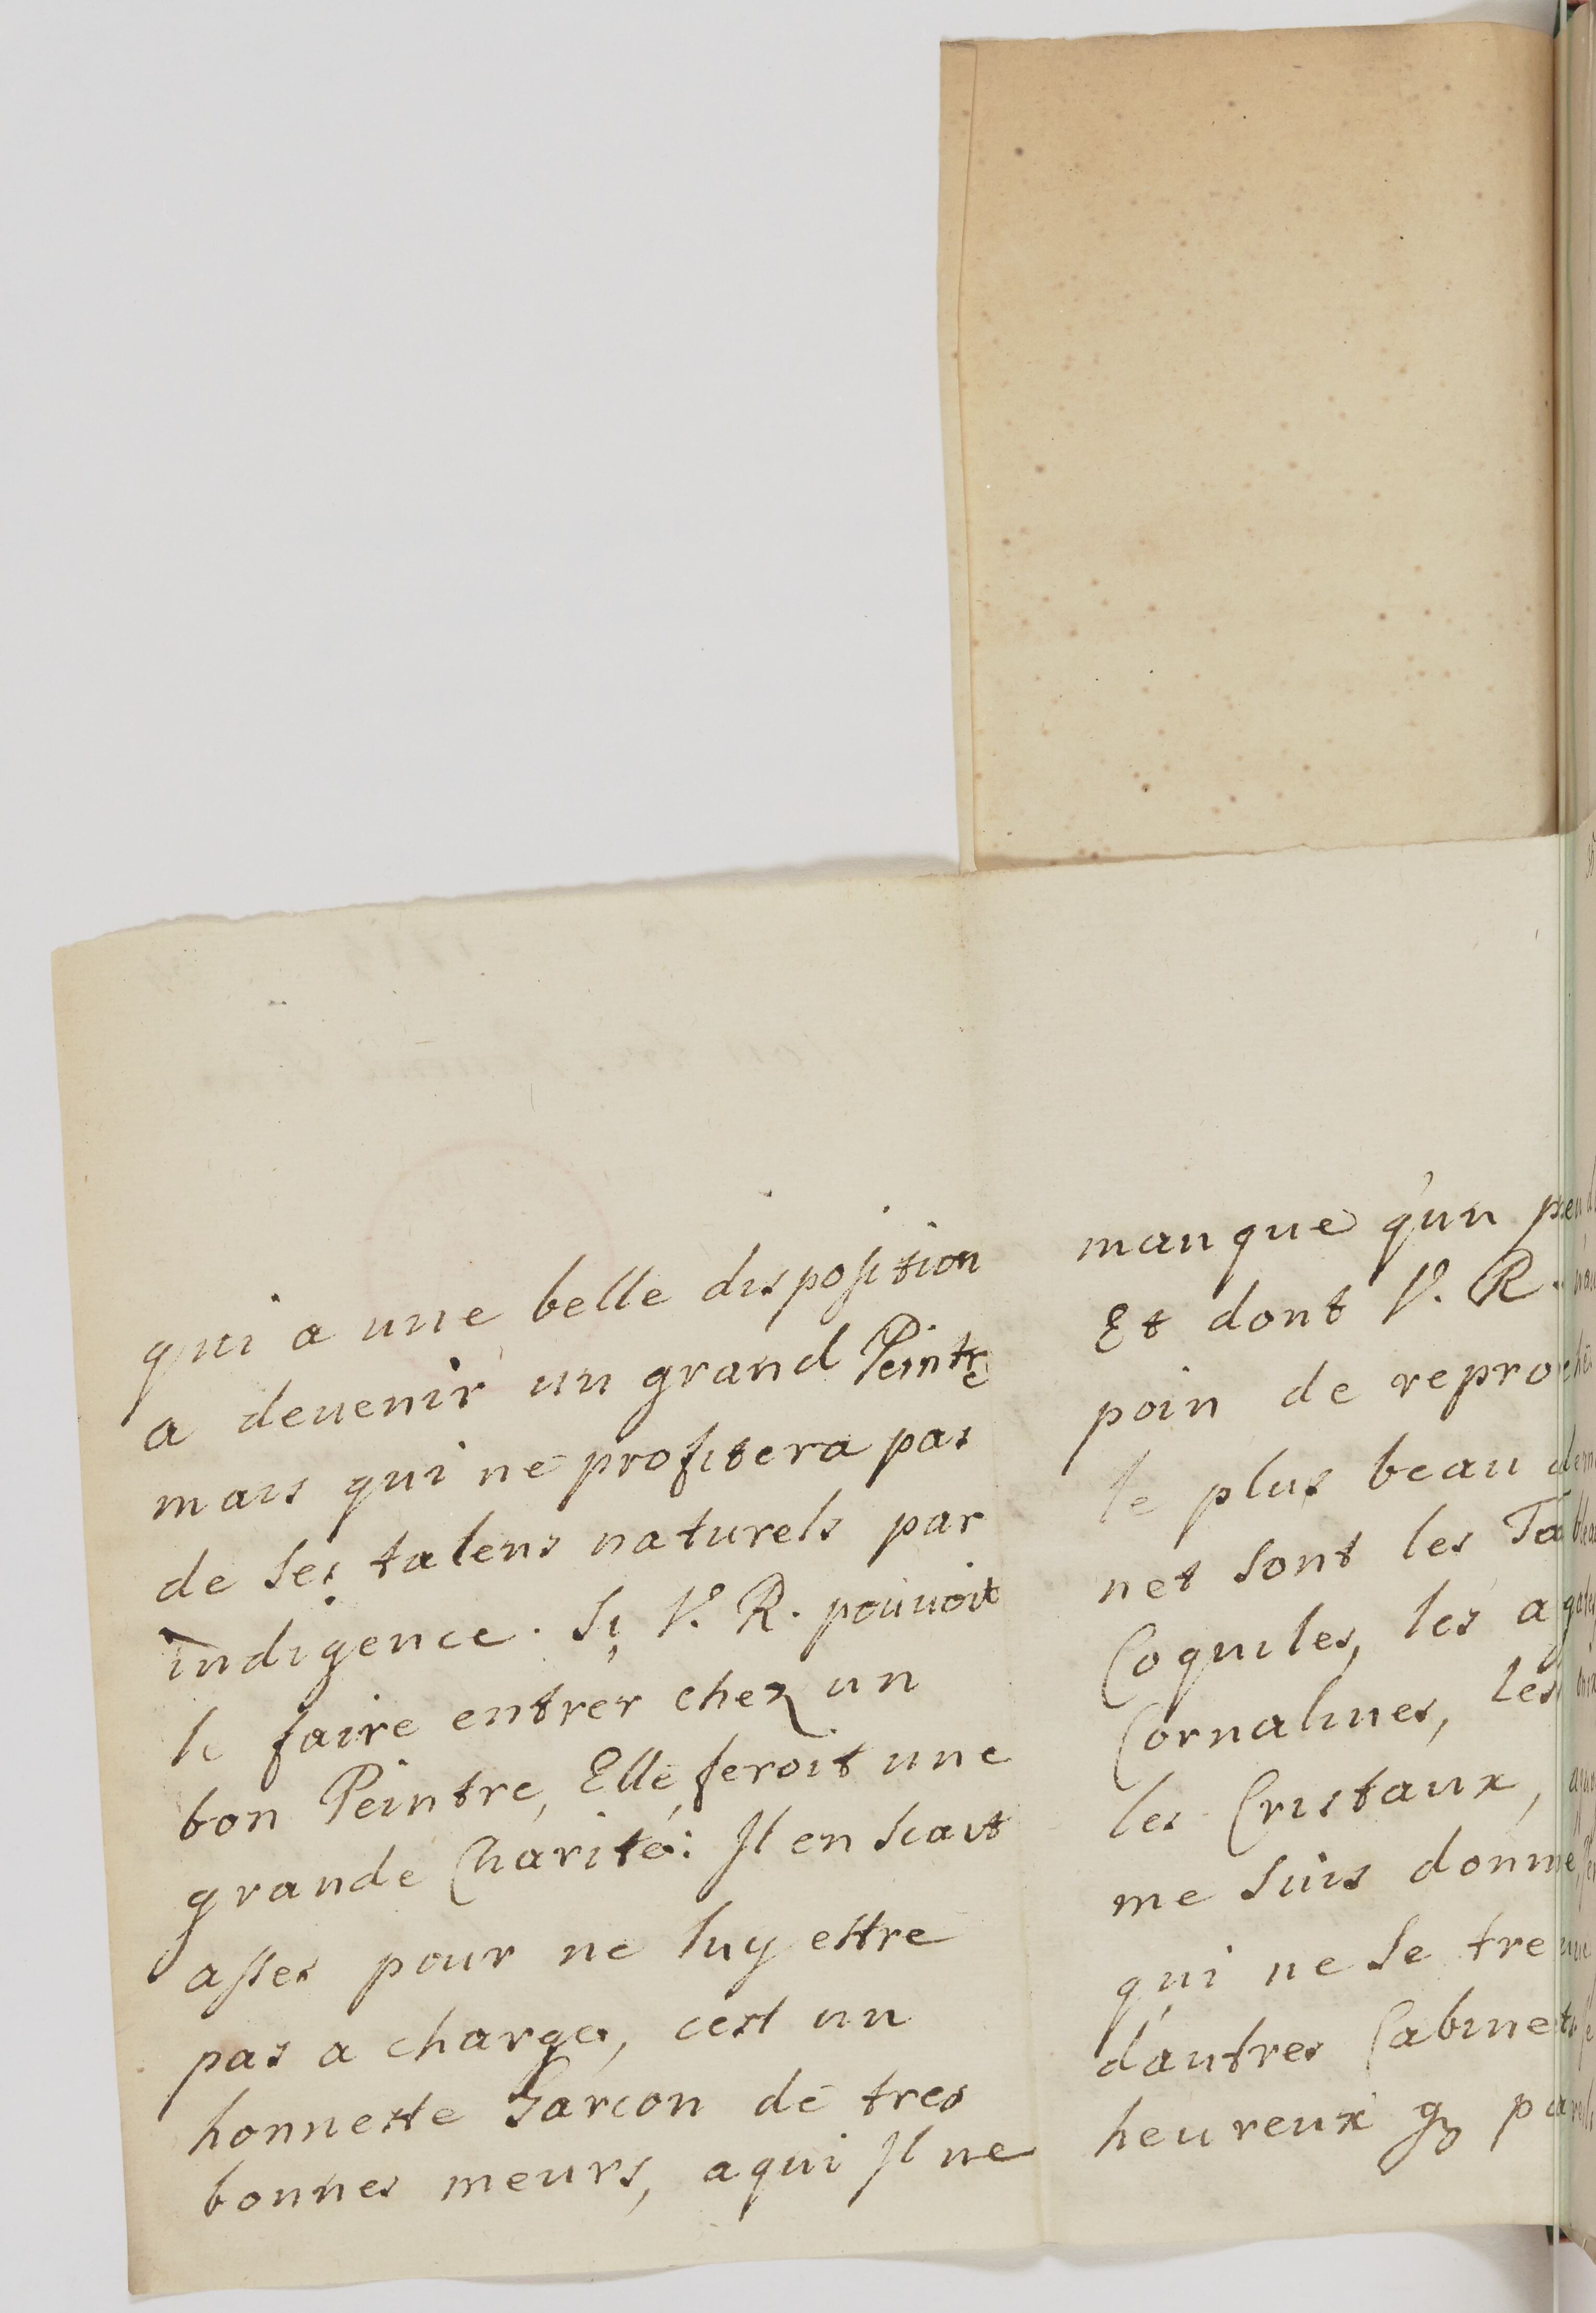 qui a une belle disposition
a deuenir un grand Peintre
mais qui ne profitera pas
de ses talens naturels par
indigence. Si V. R. pouuoit
le faire entrer chez un
bon Peintre, Elle feroit une
grande Charité: Il en scait
asses pour ne luy estre
pas a charge, cest un
honneste Garcon de tres
bonnes meurs, a qui Il ne
manque qun peu
Et dont V. R.
poin de repro
le plus beau
net sont les Ta
Coquiles, les aga
Cornalines, les
les Cristaux,
me suis donne
qui ne se treu
dautres Cabinets
heureux